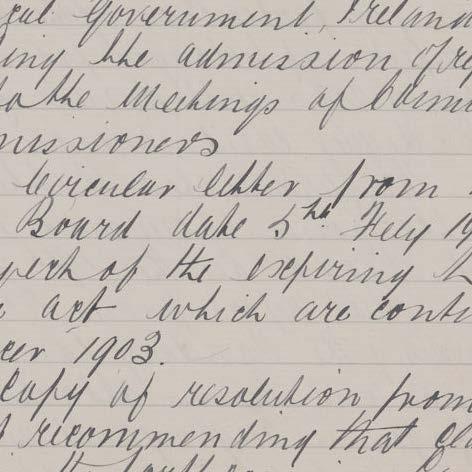 cal Government, Ireland
ing the admission of re
to the Meetings of Comm
missioners
Circular letter from
Board date 5th Feby 19
pect of the expiring
act which are conti
cer 1903.
Copy of resolution from
recommending that cl